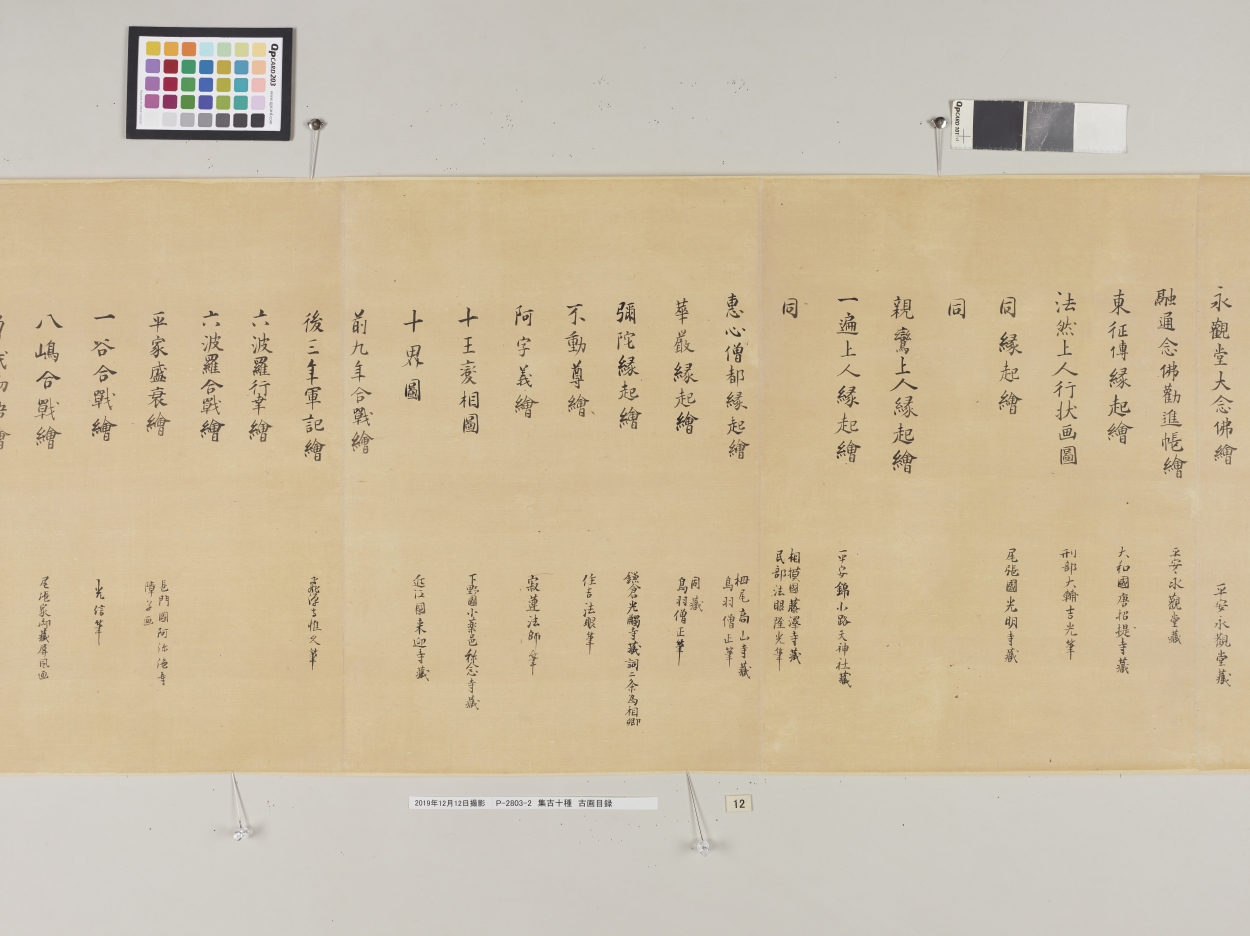 永觀堂大念佛繪
平安永觀堂藏
融通念佛勸進帳繪
平安永觀堂藏
東征傳縁起繪
大和國唐招提寺藏
法然上人行状画圖
刑部大輔吉光筆
同縁起繪
尾張國光明寺藏
同
親鸞上人縁起繪
一遍上人縁起繪
平安錦小路天神社藏
同
相摸國藤澤寺藏
民部法眼隆光筆
惠心僧都縁起繪
栂尾高山寺藏
鳥羽僧正筆
華嚴縁起繪
同藏
鳥羽僧正筆
彌陀縁起繪
鎌倉光觸寺藏詞二条為相卿
不動尊繪
住吉法眼筆
阿字義繪
寂蓮法師筆
十王変相圖
下野國小薬邑称念寺藏
十界圖
近江國来迎寺藏
前九年合戰繪
後三年軍記繪
飛弾守惟久筆
六波羅行幸繪
六波羅合戰繪
平家盛衰繪
長門國阿弥陀寺
障子画
一谷合戰繪
光信筆
八嶋合戰繪
尾張家御藏屏風画
2019年12月12日撮影 P-2803-2 集古十種 古画目録
12
QPCARD 203
QPCARD 101